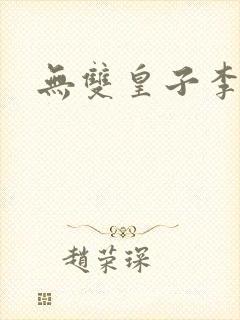 無雙皇子李
趙荣琛